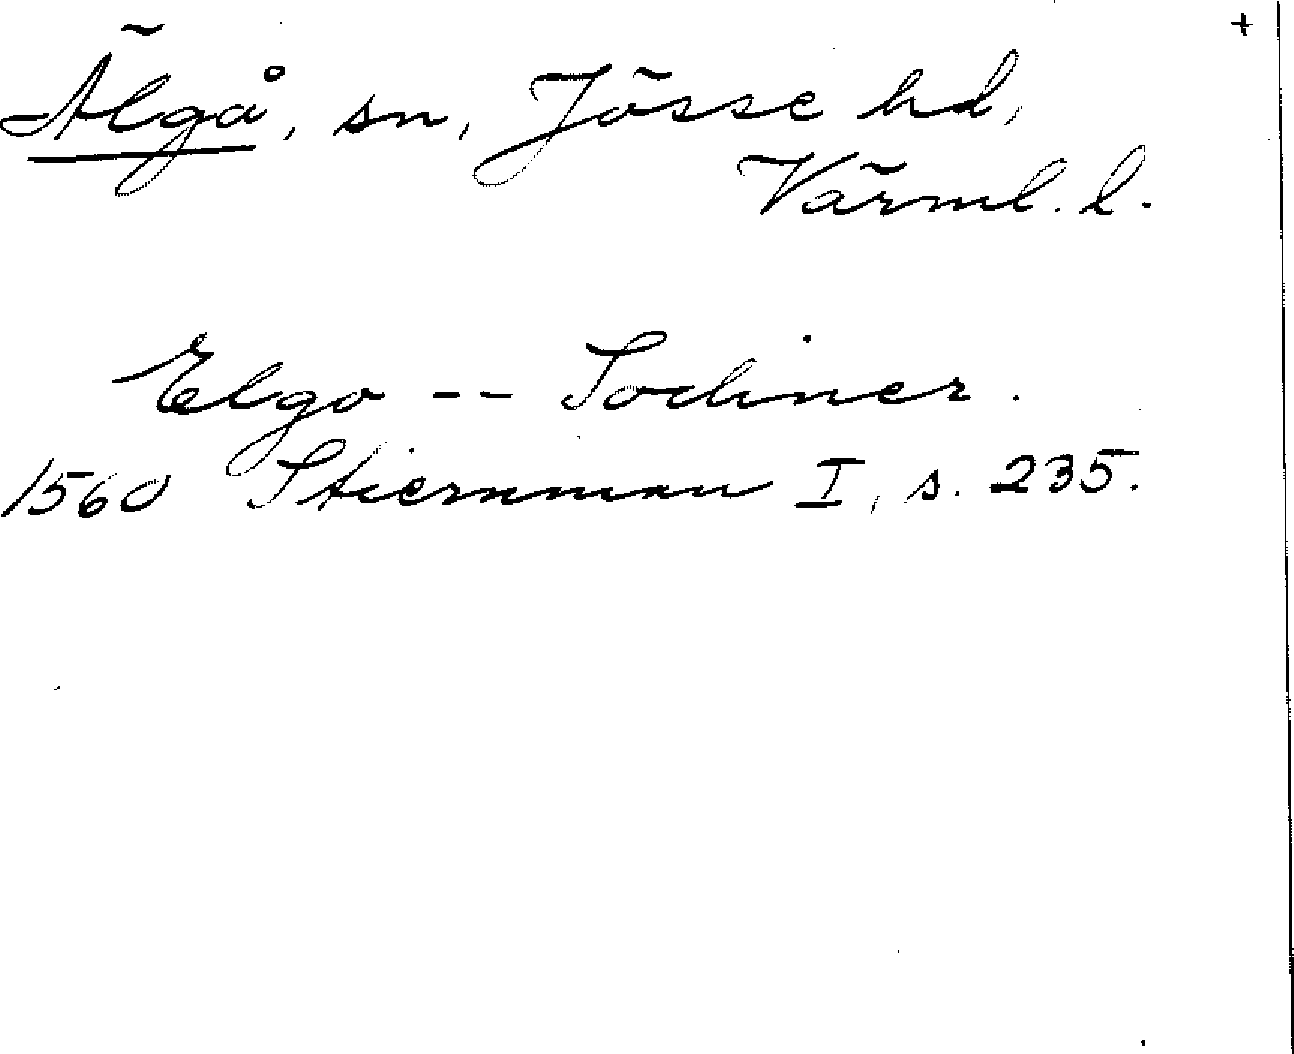 +
Älgå, sn, Jösse hd,
Värml. l.
Elgo -- Sochner.
1560 Stiernman I, s. 235.